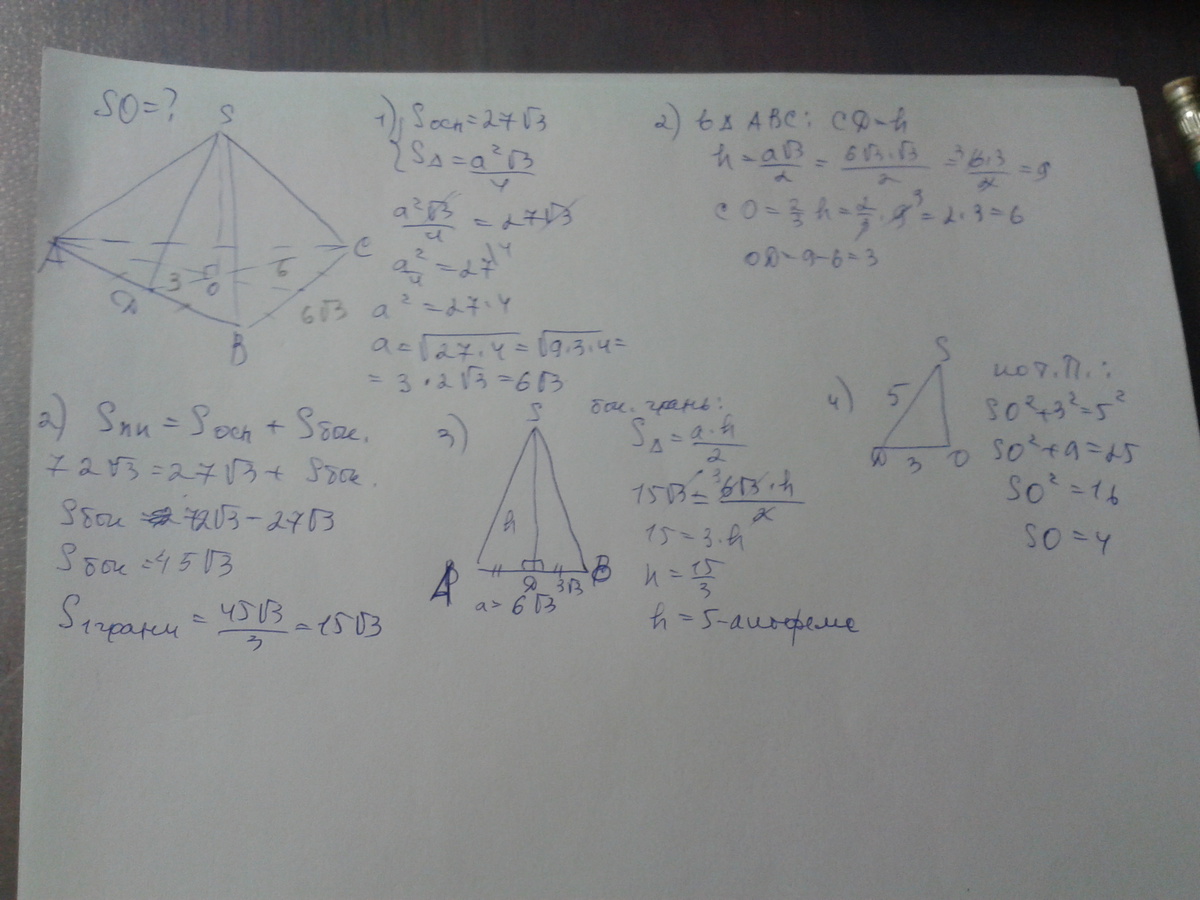 SO=?
S
A
C
D
3
O
6
B
6√3
1) Sосн=27√3
S△=a²√3/4
a²√3/4=27√3
a²/4=27
a²=27·4
a=√27·4=√9·3·4=
=3·2√3=6√3
2) в △ ABC: CD=h
h=a√3/2=6√3·√3/2=6·3/2=9
CO=2/3h=2/3·9=2·3=6
OD=9-6=3
2) Sпп=Sосн+Sбок.
72√3=27√3+Sбок.
Sбок=72√3-27√3
Sбок=45√3
S1грани=45√3/3=15√3
3)
S
h
A
D
3√3
B
a=6√3
бок. грань:
S△=a·h/2
15√3=6√3·h/2
15=3·h
h=15/3
h=5-апофема
4)
S
5
D
3
O
по т.П.:
SO²+3²=5²
SO²+9=25
SO²=16
SO=4